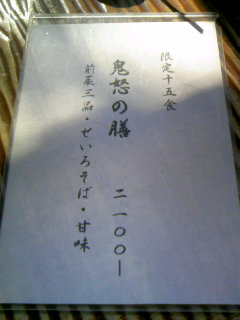 限定十五食
鬼怒の膳 二一〇〇―
前菜三品・せいろそば・甘味